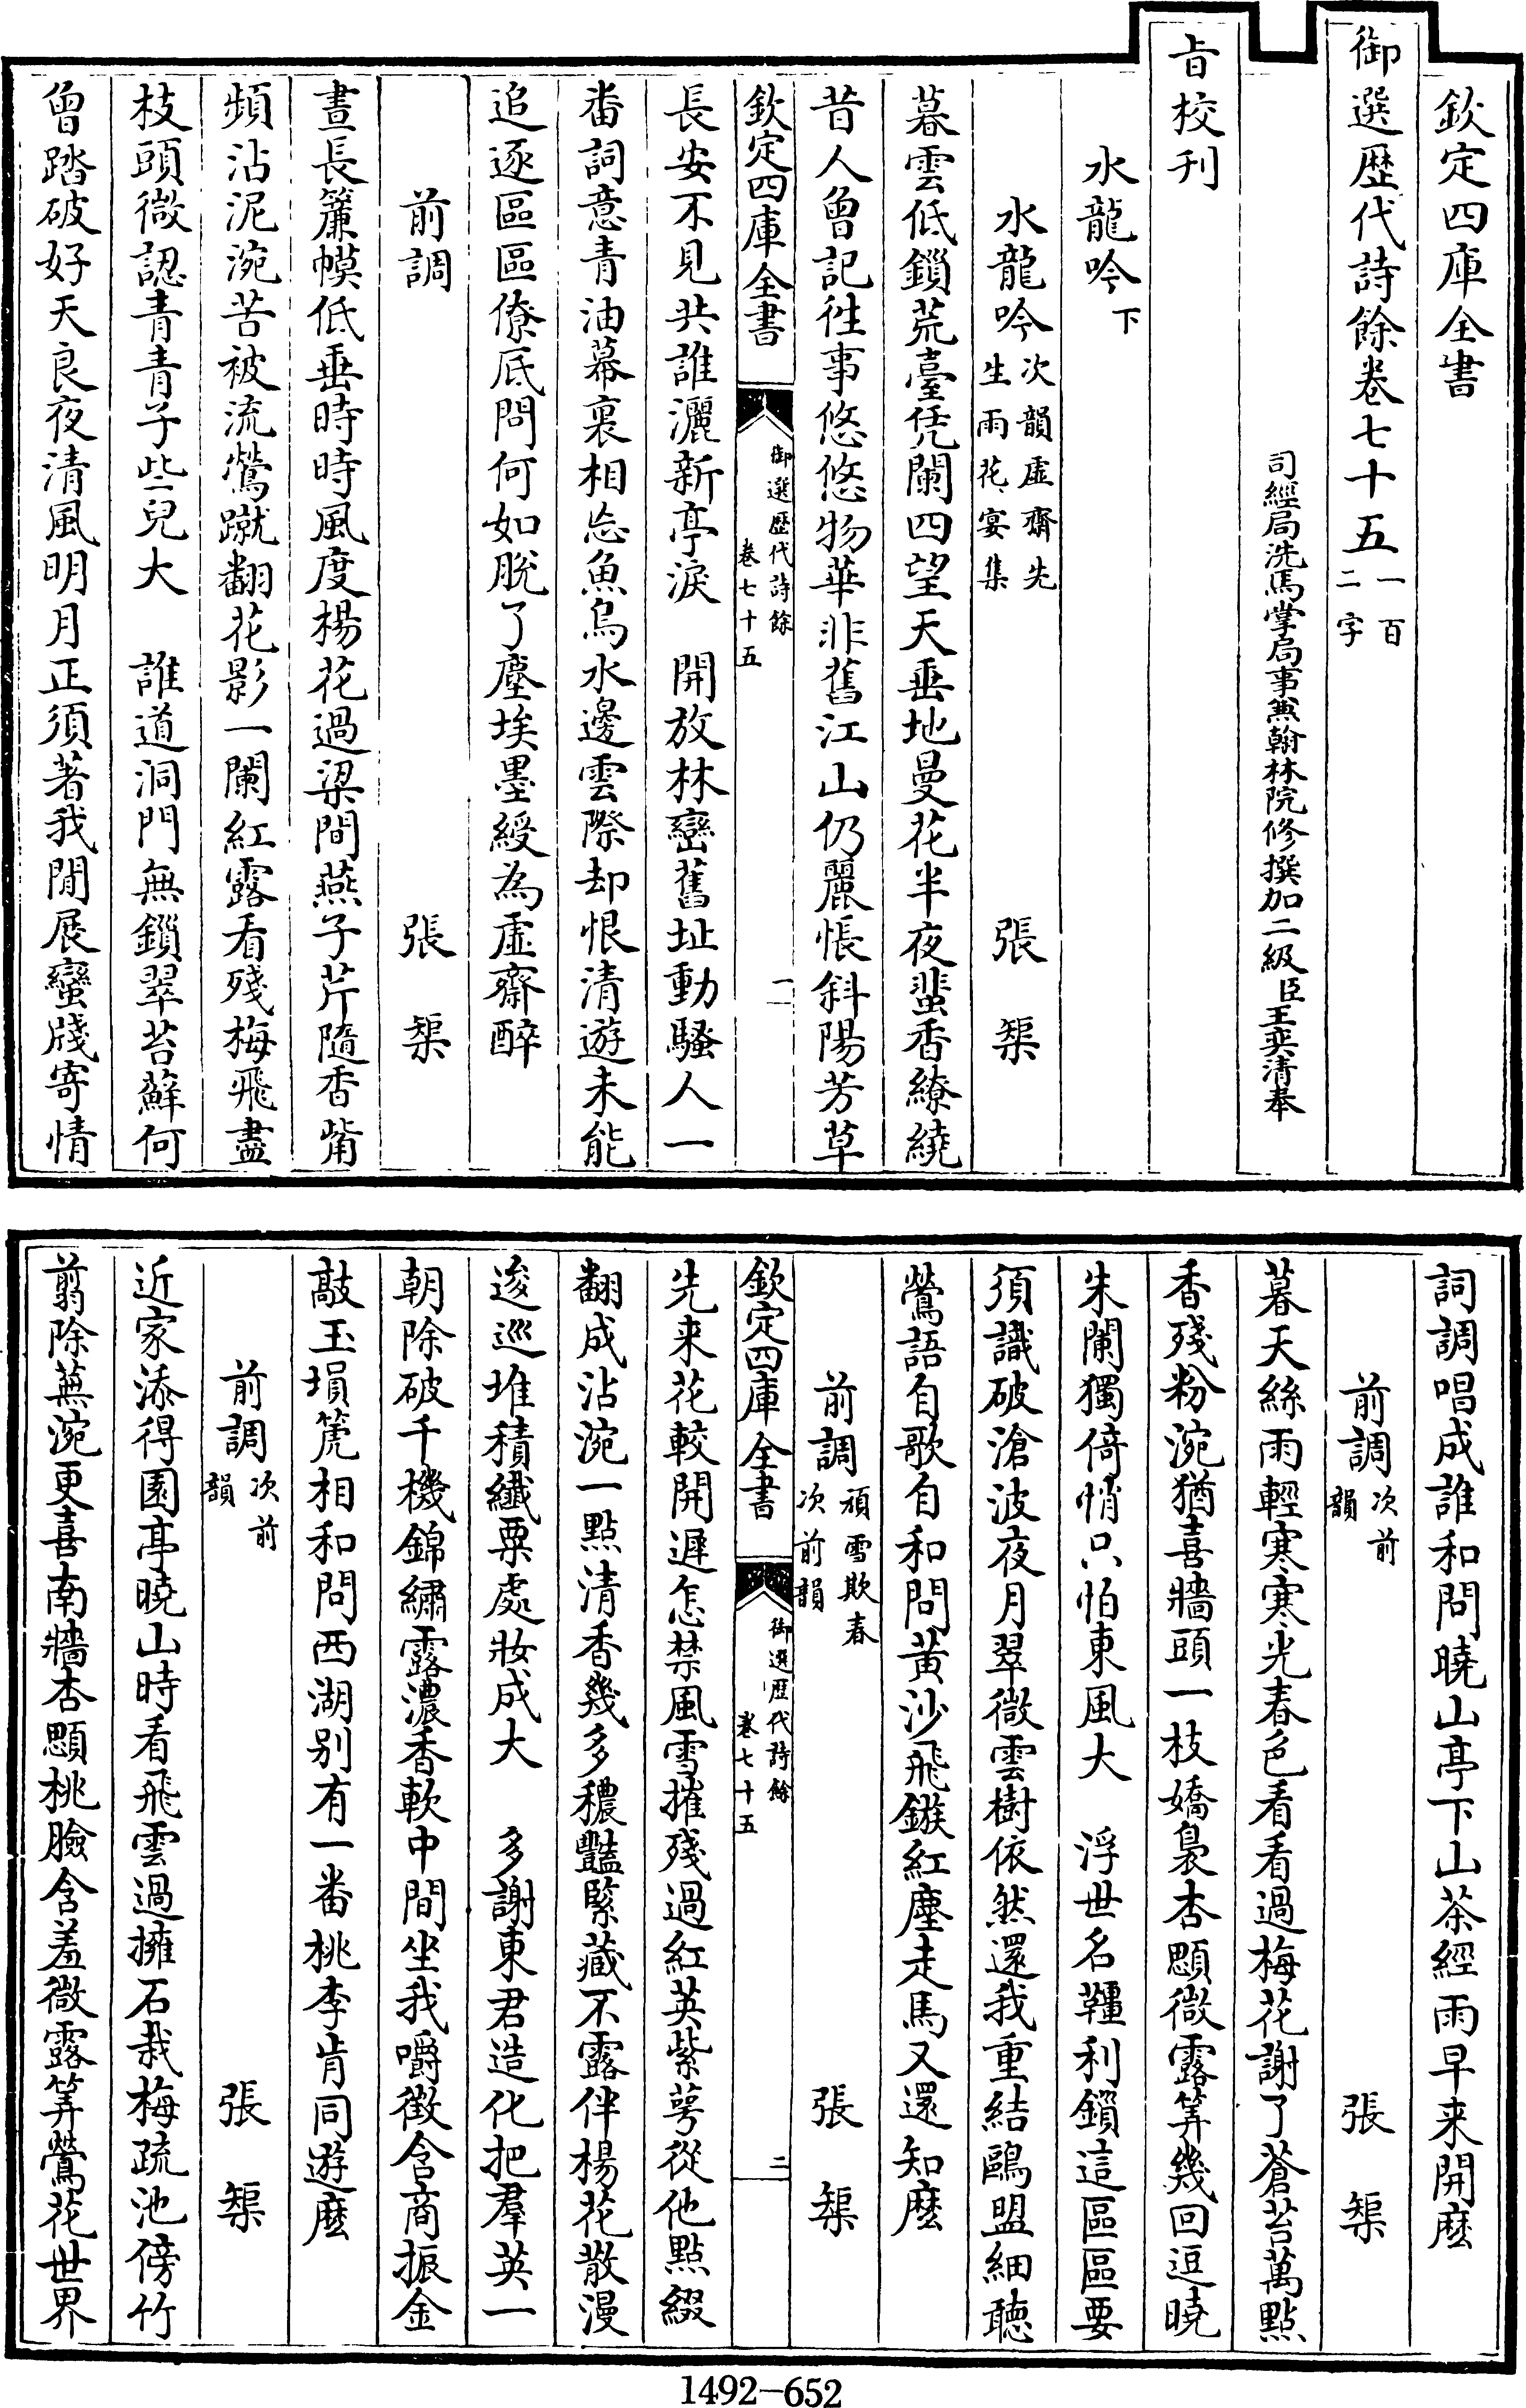 欽定四庫全書
御選歷代詩餘卷七十五一百二字
司經局洗馬掌局事兼翰林院修撰加二級臣王奕清奉
旨校刊
水龍吟下
水龍吟次韻虛齋先生雨花宴集 張榘
暮雲低鎖荒臺凭闌四望天垂地曼花半夜蜚香繚繞
昔人曾記往事悠悠物華非舊江山仍麗悵斜陽芳草
欽定四庫全書 御選歷代詩餘 卷七十五 一
長安不見共誰灑新亭淚 開放林巒舊址動騷人一
番詞意青油幕裏相忘魚鳥水邊雲際却恨清遊未能
追逐區區僚底問何如脫了塵埃墨綬為虛齋醉
前調 張榘
晝長簾幙低垂時時風度楊花過梁間燕子芹隨香觜
頻沾泥涴苦被流鶯蹴翻花影一闌紅露看殘梅飛盡
枝頭微認青青子些兒大 誰道洞門無鎖翠苔蘚何
曾踏破好天良夜清風明月正須著我閒展蠻牋寄情
詞調唱成誰和問曉山亭下山茶經雨早来開麽
前調次前韻 張榘
暮天絲雨輕寒寒光春色看看過梅花謝了蒼苔萬點
香殘粉涴猶喜牆頭一枝嬌裊杏顋微露筭幾回逗曉
朱闌獨倚悄只怕東風大 浮世名韁利鎖這區區要
須識破滄波夜月翠微雲樹依然還我重結鷗盟細聽
鶯語自歌自和問黃沙飛鏃紅塵走馬又還知麽
前調頑雪欺春次前韻 張榘
欽定四庫全書 御選歷代詩餘 卷七十五 二
先来花較開遲怎禁風雪摧殘過紅英紫萼從他點綴
翻成沾涴一點清香幾多穠豔緊藏不露伴楊花散漫
逡巡堆積纖粟處妝成大 多謝東君造化把羣英一
朝除破千機錦繡露濃香軟中間坐我嚼徵含商振金
敲玉塤箎相和問西湖別有一番桃李肯同遊麽
前調次前韻 張榘
近家添得園亭曉山時看飛雲過擁石栽梅疏池傍竹
翦除蕪涴更喜南牆杏顋桃臉含羞微露筭鶯花世界
1492-652